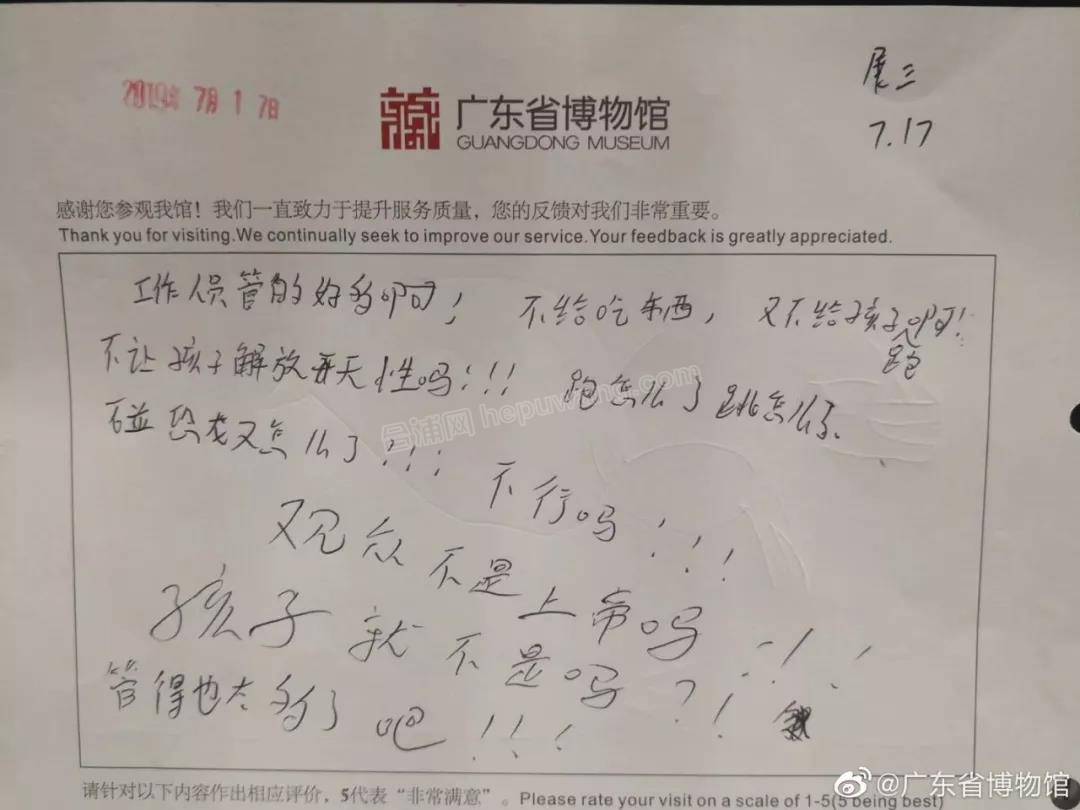 2019年 7月 17日
展三
7.17
广东省博物馆
GUANGDONG MUSEUM
感谢您参观我馆！我们一直致力于提升服务质量，您的反馈对我们非常重要。
Thank you for visiting.We continually seek to improve our service.Your feedback is greatly appreciated.
工作人员管的好多啊！ 不给吃东西， 又不给孩子跑啊！
不让孩子解放天性吗！！！ 跑怎么了 跳怎么了、
碰恐龙又怎么了！！！ 不行吗！！！
观众不是上帝吗！！！
孩子就不是吗？！
管得也太多了吧！！！
合浦网 hepuwang.com
请针对以下内容作出相应评价，5代表“非常满意”。Please rate your visit on a scale of 1-5(5 being best)
@广东省博物馆